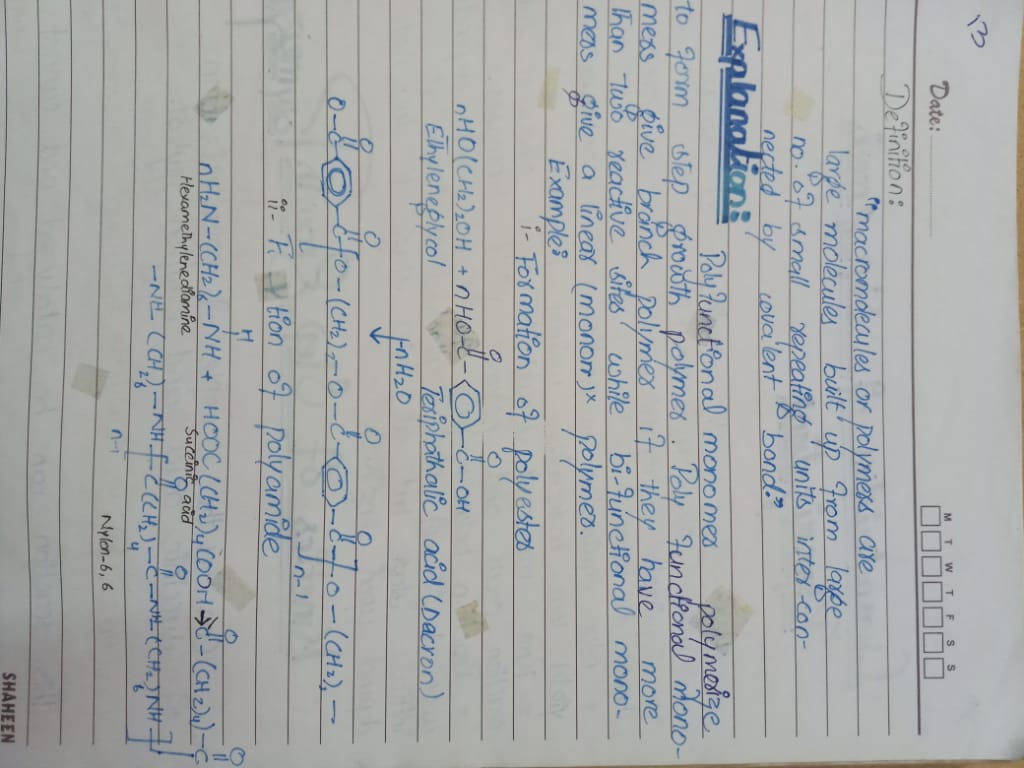 13
Date:
M T W T F S S
Definition:
"macromolecules or polymess are
large molecules built up from lage
no. of small repeating units inter con-
nected by covalent bond."
Explanation:
Polyfunctional monomes polymesize
to form step growth polymes. Poly functional mono-
mess give branch polymes if they have more
than two reactive sites while bi-functional mono-
mess give a linear (monom)x polymes.
Example:
i- Formation of polyestes
nHO(CH2)2OH + nHOC-C-OH
O O
Ethyleneglycol Teripthalic acid (Dacron)
-nH2O
O O O O
O-C-C-O-(CH2)2-O-C-C-O-(CH2)2-
n-1
ii- F tion of polyamide
H
nH2N-(CH2)6-NH + HOOC(CH2)4COOH → C-(CH2)4)-C
O O
Hexamethylenediamine Succinic acid
O O
-NH-(CH2)6-NH-[-C(CH2)4-C-NH-(CH2)6NH-]
n-1
Nylon-6,6
SHAHEEN